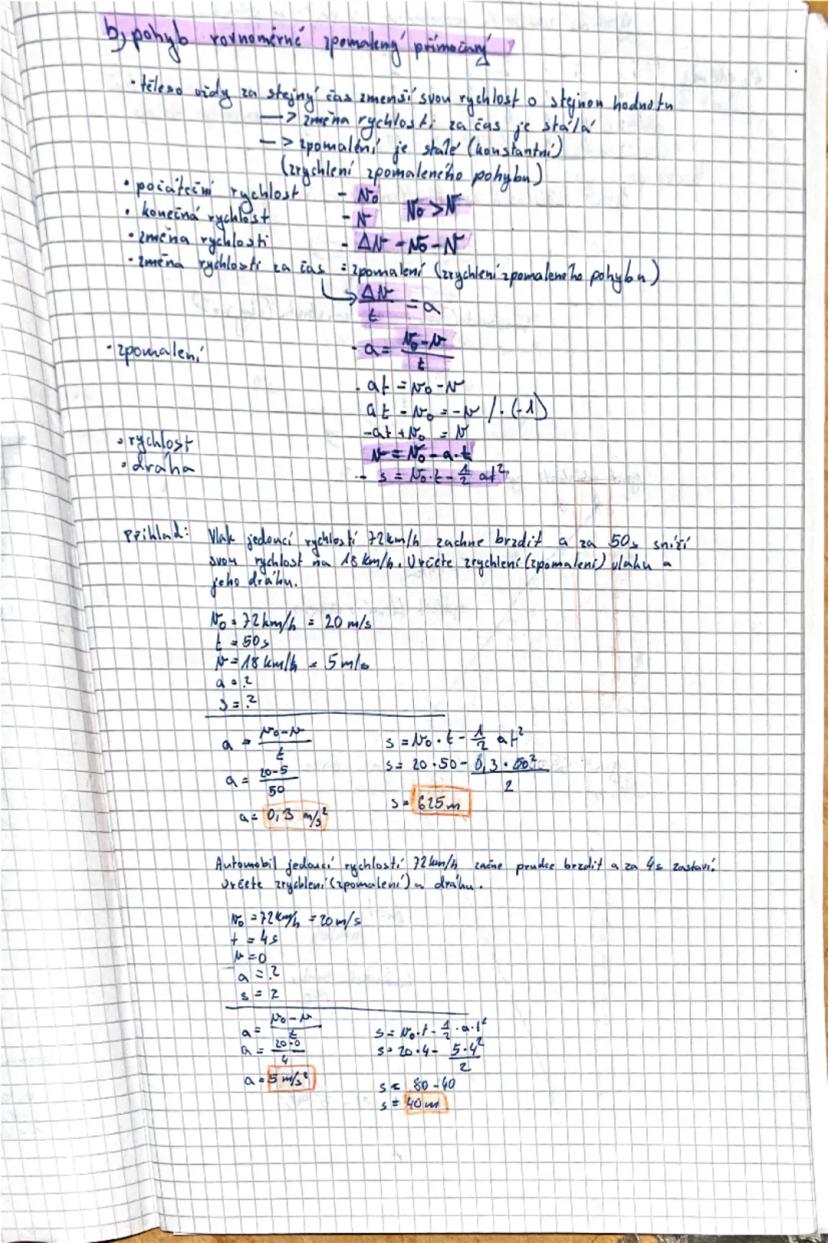 b) pohyb rovnoměrně zpomalený přímočarý
• těleso vždy za stejný čas zmenší svou rychlost o stejnou hodnotu
—> změna rychlosti za čas je stálá
—> zpomalení je stálé (konstantní)
(zrychlení zpomaleného pohybu)
• počáteční rychlost - v₀
• konečná rychlost - v v₀ > v
• změna rychlosti - Δv = v₀ - v
• změna rychlosti za čas = zpomalení (zrychlení zpomaleného pohybu)
Δv/t = a
• zpomalení - a = (v₀-v)/t
- at = v₀ - v
at - v₀ = -v /·(-1)
-at + v₀ = v
• rychlost v = v₀ - a·t
• dráha - s = v₀·t - 1/2 at²
příklad: Vlak jedoucí rychlostí 72km/h začne brzdit a za 50s sníží
svou rychlost na 18 km/h. Určete zrychlení (zpomalení) vlaku a
jeho dráhu.
v₀ = 72km/h = 20 m/s
t = 50s
v = 18 km/h = 5 m/s
a = ?
s = ?
a = (v₀-v)/t s = v₀·t - 1/2 at²
a = (20-5)/50 s = 20·50 - (0,3·50²)/2
a = 0,3 m/s² s = 625m
Automobil jedoucí rychlostí 72km/h začne prudce brzdit a za 4s zastaví.
Určete zrychlení (zpomalení) a dráhu.
v₀ = 72km/h = 20m/s
t = 4s
v = 0
a = ?
s = ?
a = (v₀-v)/t s = v₀·t - 1/2·a·t²
a = (20-0)/4 s = 20·4 - (5·4²)/2
a = 5 m/s² s = 80-40
s = 40m